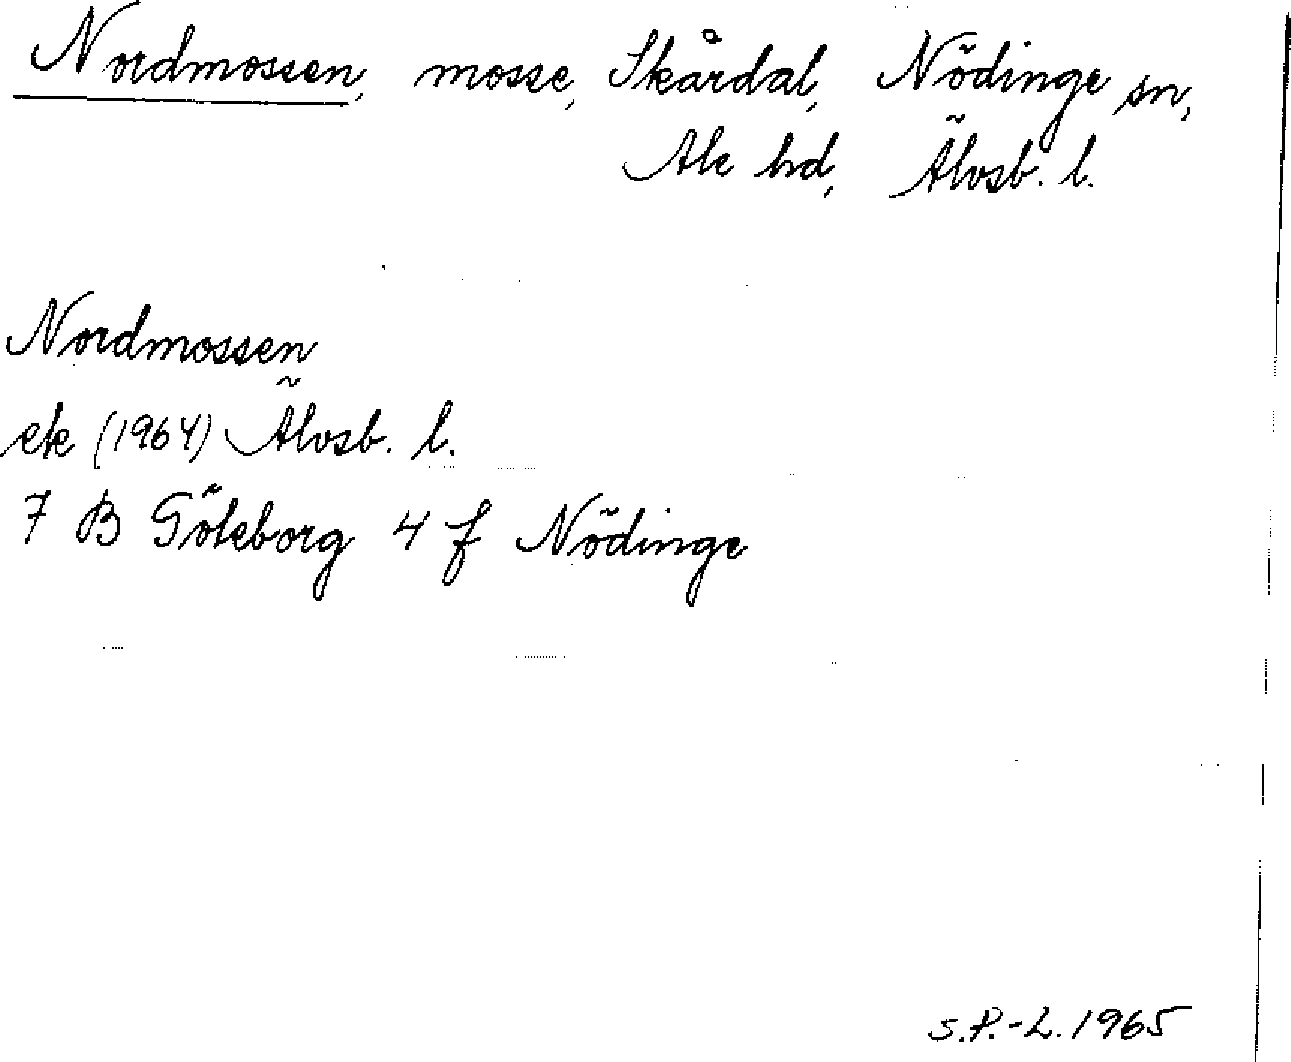 Nordmossen, mosse, Skårdal, Nödinge sn,
Ale hd, Älvsb. l.
Nordmossen
ek (1964) Älvsb. l.
7 B Göteborg 4 f Nödinge
S.P.-L. 1965